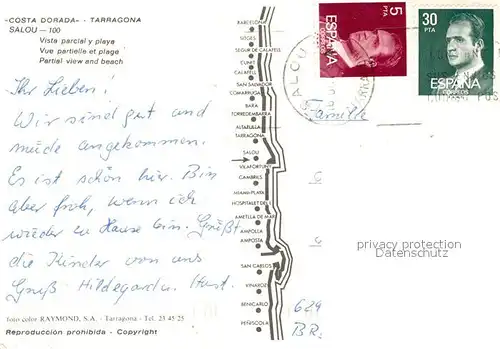 «COSTA DORADA» - TARRAGONA
SALOU — 100
Vista parcial y playa
Vue partielle et plage
Partial view and beach
Ihr Lieben!
Wir sind gut und
müde angekommen.
Es ist schön hier. Bin
aber froh, wenn ich
wieder zu Hause bin. Grüßt
die Kinder von uns
Gruß Hildegard u. Kurt.
foto color RAYMOND, S.A. - Tarragona - Tel. 23 45 25
Reproducción prohibida - Copyright
BARCELONA
SITGES
SEGUR DE CALAFELL
CUNIT
CALAFELL
SAN SALVADOR
COMARRUGA
BARA
TORREDEMBARRA
ALTAFULLA
TARRAGONA
SALOU
VILAFORTUNY
CAMBRILS
MIAMI-PLAYA
HOSPITALET DEL I.
AMETLLA DE MAR
AMPOLLA
AMPOSTA
SAN CARLOS
VINAROZ
BENICARLO
PEÑISCOLA
5 PTA
ESPAÑA
30
PTA
ESPAÑA
CORREOS
SALOU
Familie
privacy protection
Datenschutz
BR